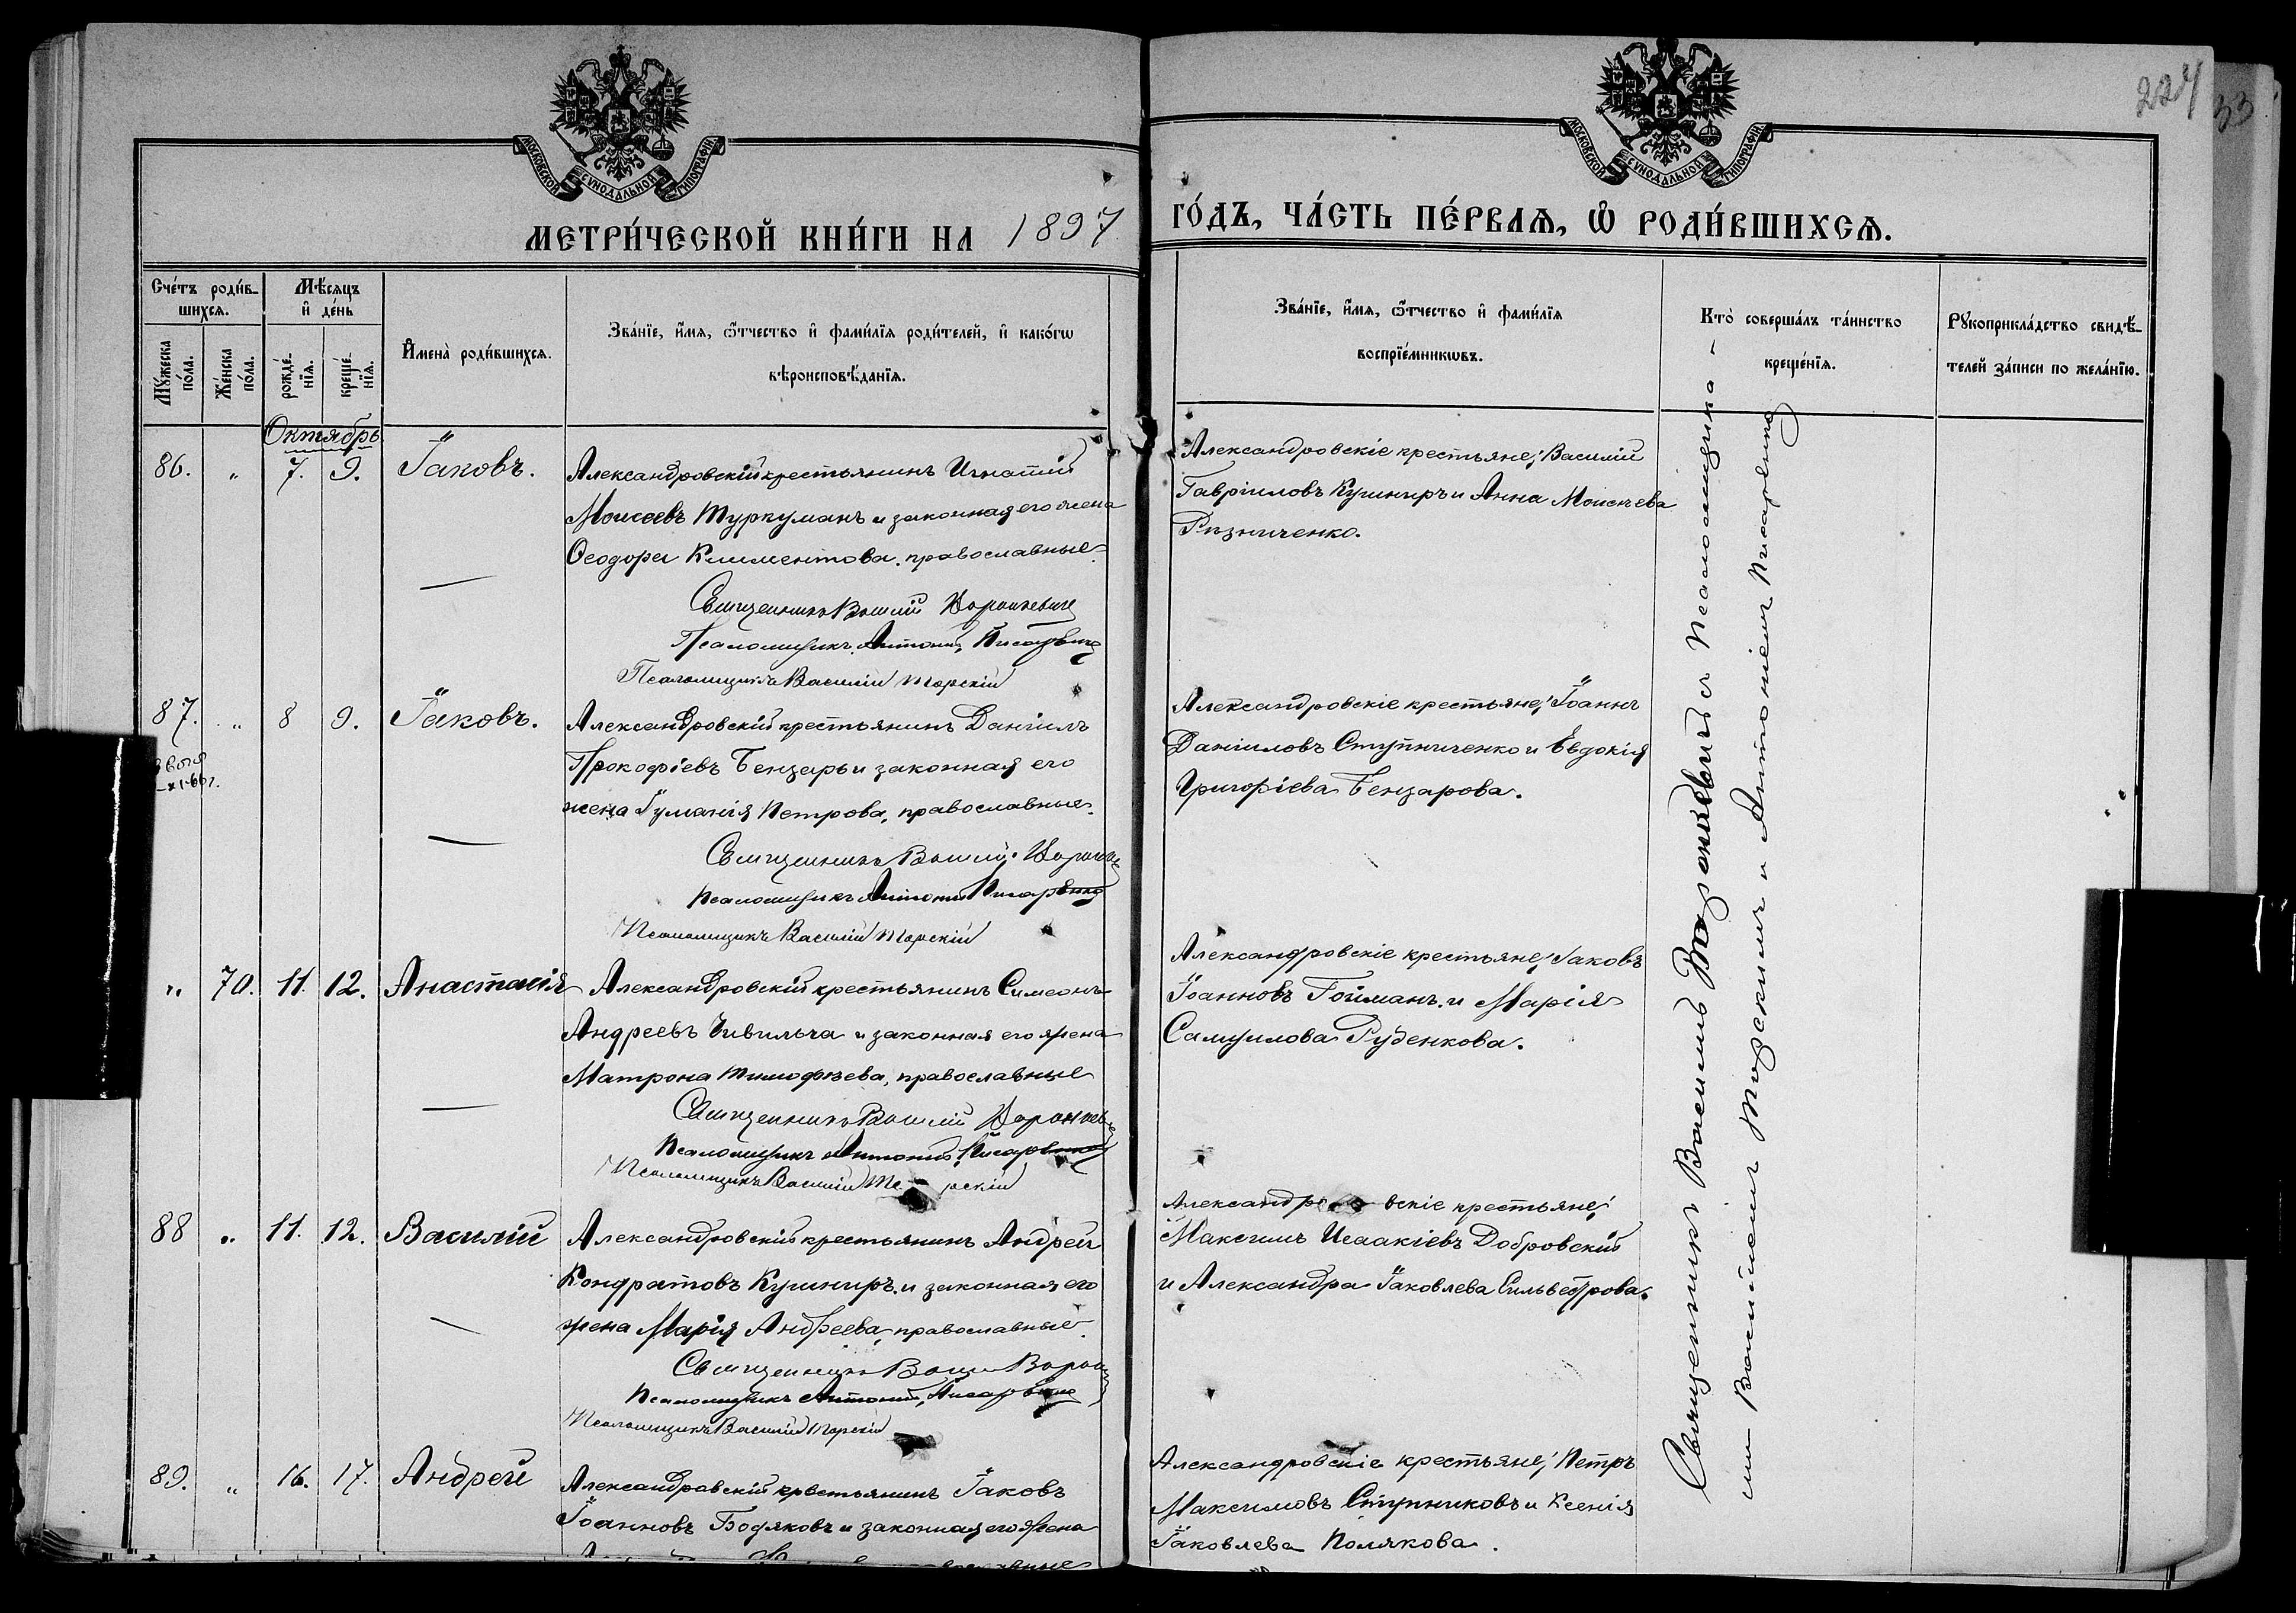 224
33
МОСКОВСКОЙ СѴНОДАЛЬНОЙ ТИПОГРАФІИ
МОСКОВСКОЙ СѴНОДАЛЬНОЙ ТИПОГРАФІИ
МЕТРИ́ЧЕСКОЙ КНИ́ГИ НА 1897 ГО́ДЪ, ЧА́СТЬ ПЕ́РВАѦ, Ѽ РОДИ́ВШИХСѦ.
Сче́тъ роди́в-
шихсѧ.
Мꙋ́жеска по́ла.
Же́нска по́ла.
Мѣ́сѧцъ
и҆ де́нь
рожде́-нїѧ.
креще́-нїѧ.
И҆мена̀ роди́вшихсѧ.
Зва́нїе, и҆́мѧ, ѻ҆́тчество и҆ фами́лїѧ роди́телей, и҆ како́гѡ
вѣроисповѣ́данїѧ.
Зва́нїе, и҆́мѧ, ѻ҆́тчество и҆ фами́лїѧ
воспрїе́мникѡвъ.
Кто̀ соверша́лъ та́инство
креще́нїѧ.
Рꙋкоприкла́дство свидѣ́-
телей за́писи по жела́нїю.
Октябрь
86. " 7. 9. Іаковъ.
Александровскій крестьянинъ Игнатій
Моисеевъ Туркуманъ и законная его жена
Ѳеодора Климентова, православные.
Священникъ Василій Воронкевичъ
Псаломщикъ Антоній
Псаломщикъ Василій Торскій
Александровскіе крестьяне; Василій
Гавріиловъ Кушниръ и Анна Моисеева
Рѣзниченко.
87. " 8 9. Іаковъ.
Александровскій крестьянинъ Даніилъ
Прокофіевъ Бензарь и законная его
жена Іуліанія Петрова, православные.
Священникъ Василій
Псаломщикъ Антоній
Псаломщикъ Василій Торскій
Александровскіе крестьяне; Іоаннъ
Даніиловъ Ступниченко и Евдокія
Григоріева Бензарова.
" 70. 11. 12. Анастасія
Александровскій крестьянинъ Симеонъ
Андреевъ Чивильча и законная его жена
Матрона Тимофѣева, православные
Священникъ Василій
Псаломщикъ Антоній
Псаломщикъ Василій То рскій
Александровскіе крестьяне; Іаковъ
Іоанновъ Гойманъ и Марія
Самуилова Руденкова.
88 " 11. 12. Василій
Александровскій крестьянинъ Андрей
Кондратовъ Кушниръ и законная его
жена Марія Андреева, православные.
Священникъ
Псаломщикъ Антоній
Псаломщикъ Василій Торскій
Александро вскіе крестьяне;
Максимъ Исаакіевъ Добровскій
и Александра Іаковлева Сильвестрова.
89. " 16. 17. Андрей
Александровскій крестьянинъ Іаковъ
Іоанновъ Бодяковъ и законная его жена
Александровскіе крестьяне; Петръ
Максимовъ Ступниковъ и Ксенія
Іаковлева Полякова.
Священникъ Василій съ Псаломщика-
ми Василіемъ Торскимъ и Антоніемъ